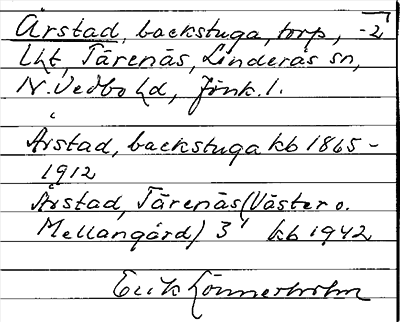 Årstad, backstuga, torp, -2
Lht, Tärenäs, Linderås sn,
N. Vedbo hd, Jönk. l.
Årstad, backstuga kb 1865-
1912
Årstad, Tärenäs (Väster o.
Mellangård) 3' kb 1942
Erik Lönnerholm